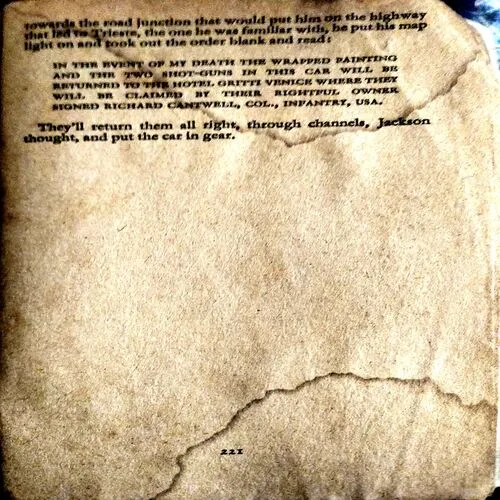 towards the road junction that would put him on the highway
that led to Trieste, the one he was familiar with, he put his map
light on and took out the order blank and read:
IN THE EVENT OF MY DEATH THE WRAPPED PAINTING
AND THE TWO SHOT-GUNS IN THIS CAR WILL BE
RETURNED TO THE HOTEL GRITTI VENICE WHERE THEY
WILL BE CLAIMED BY THEIR RIGHTFUL OWNER
SIGNED RICHARD CANTWELL, COL., INFANTRY, USA.
They'll return them all right, through channels, Jackson
thought, and put the car in gear.
221